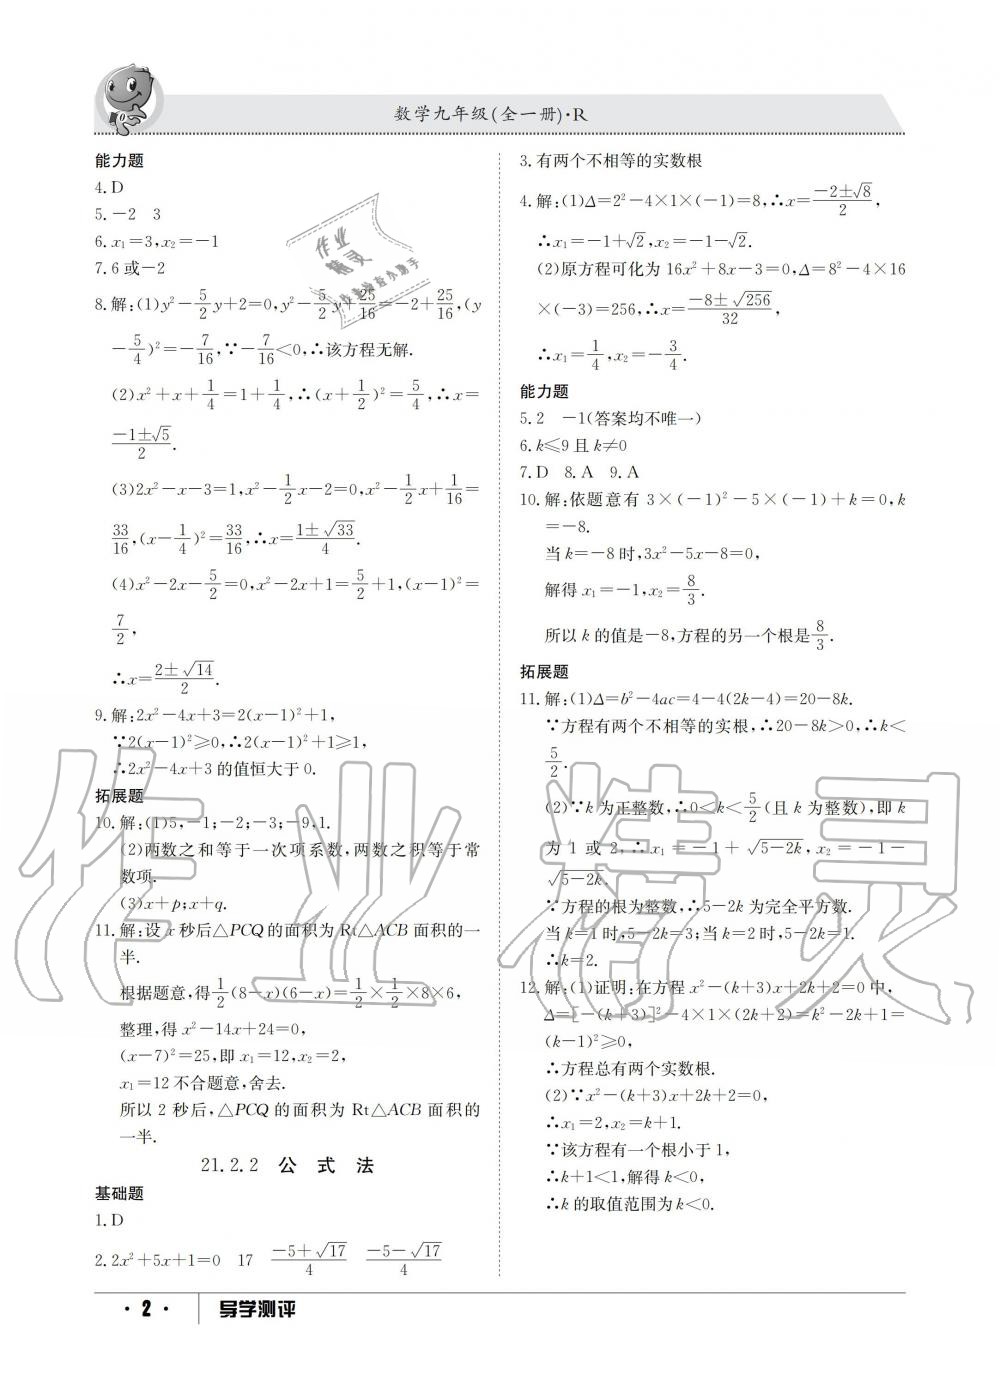 数学九年级(全一册)·R
能力题
4.D
5.-2　3
6.x₁=3,x₂=-1
7.6或-2
8.解:(1)y²-5/2y+2=0,y²-5/2y+25/16=-2+25/16,(y
-5/4)²=-7/16,∵-7/16<0,∴该方程无解.
(2)x²+x+1/4=1+1/4,∴(x+1/2)²=5/4,∴x=
(-1±√5)/2.
(3)2x²-x-3=1,x²-1/2x-2=0,x²-1/2x+1/16=
33/16,(x-1/4)²=33/16,∴x=(1±√33)/4.
(4)x²-2x-5/2=0,x²-2x+1=5/2+1,(x-1)²=
7/2,
∴x=(2±√14)/2.
9.解:2x²-4x+3=2(x-1)²+1,
∵2(x-1)²≥0,∴2(x-1)²+1≥1,
∴2x²-4x+3的值恒大于0.
拓展题
10.解:(1)5,-1;-2;-3;-9,1.
(2)两数之和等于一次项系数,两数之积等于常
数项.
(3)x+p;x+q.
11.解:设x秒后△PCQ的面积为Rt△ACB面积的一
半.
根据题意,得1/2(8-x)(6-x)=1/2×1/2×8×6,
整理,得x²-14x+24=0,
(x-7)²=25,即x₁=12,x₂=2,
x₁=12不合题意,舍去.
所以2秒后,△PCQ的面积为Rt△ACB面积的
一半.
21.2.2　公式法
基础题
1.D
2.2x²+5x+1=0　17　(-5+√17)/4　(-5-√17)/4
3.有两个不相等的实数根
4.解:(1)Δ=2²-4×1×(-1)=8,∴x=(-2±√8)/2,
∴x₁=-1+√2,x₂=-1-√2.
(2)原方程可化为16x²+8x-3=0,Δ=8²-4×16
×(-3)=256,∴x=(-8±√256)/32,
∴x₁=1/4,x₂=-3/4.
能力题
5.2　-1(答案均不唯一)
6.k≤9且k≠0
7.D　8.A　9.A
10.解:依题意有3×(-1)²-5×(-1)+k=0,k
=-8.
当k=-8时,3x²-5x-8=0,
解得x₁=-1,x₂=8/3.
所以k的值是-8,方程的另一个根是8/3.
拓展题
11.解:(1)Δ=b²-4ac=4-4(2k-4)=20-8k.
∵方程有两个不相等的实根,∴20-8k>0,∴k<
5/2.
(2)∵k为正整数,∴0<k<5/2(且k为整数),即k
为1或2,∴x₁=-1+√5-2k,x₂=-1-
√5-2k.
∵方程的根为整数,∴5-2k为完全平方数.
当k=1时,5-2k=3;当k=2时,5-2k=1.
∴k=2.
12.解:(1)证明:在方程x²-(k+3)x+2k+2=0中,
Δ=[-(k+3)]²-4×1×(2k+2)=k²-2k+1=
(k-1)²≥0,
∴方程总有两个实数根.
(2)∵x²-(k+3)x+2k+2=0,
∴x₁=2,x₂=k+1.
∵该方程有一个根小于1,
∴k+1<1,解得k<0,
∴k的取值范围为k<0.
·2·　导学测评
作业精灵
作业
精灵